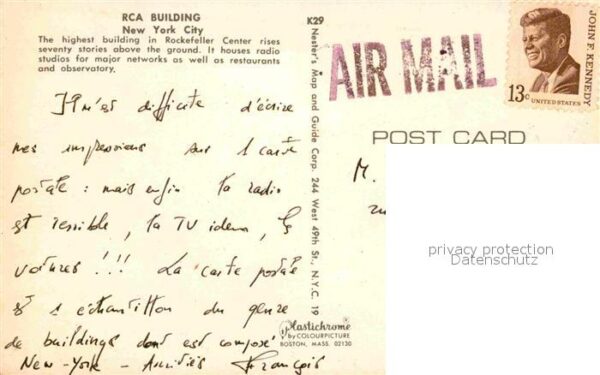 RCA BUILDING
New York City
The highest building in Rockefeller Center rises
seventy stories above the ground. It houses radio
studios for major networks as well as restaurants
and observatory.
Il m'est difficile d'écrire
mes impressions sur 1 carte
postale : mais enfin la radio
est , la TV idem, les
voitures !!! La carte postale
est 1 échantillon du genre
de buildings dont est composé
New-York - Amitiés François
K29
Nester's Map and Guide Corp. 244 West 49th St., N.Y.C. 19
Plastichrome
by COLOURPICTURE
BOSTON, MASS. 02130
AIR MAIL
JOHN F. KENNEDY
13c UNITED STATES
POST CARD
M.
privacy protection
Datenschutz